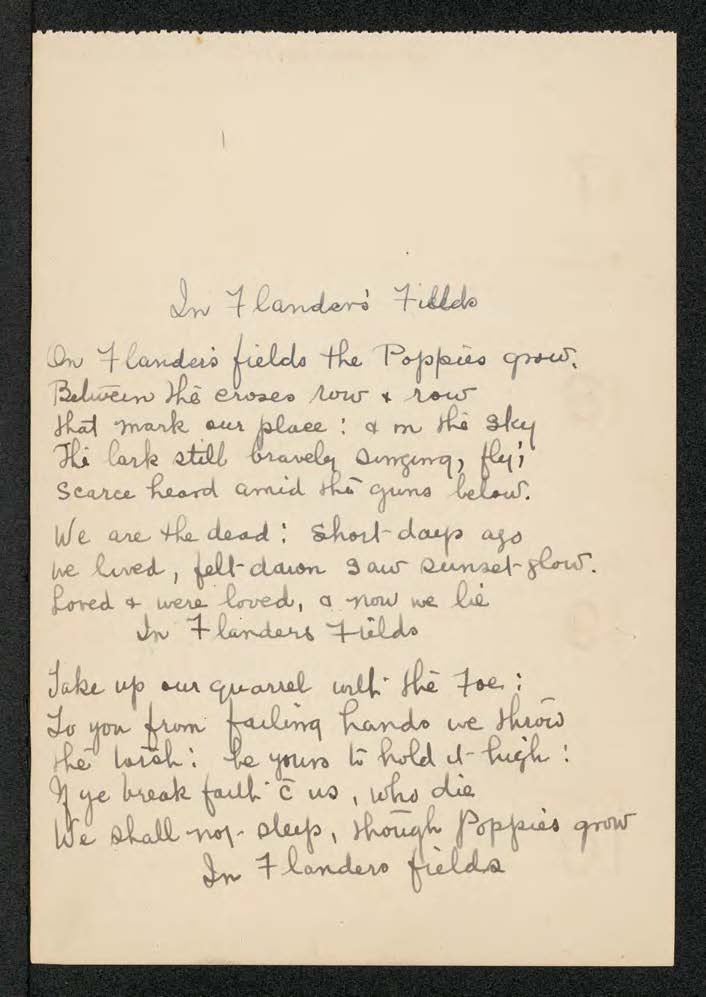 In Flanders' Fields
In Flanders fields the Poppies grow.
Between the croses row & row
that mark our place: & in the sky
The lark still bravely singing, fly;
Scarce heard amid the guns below.
We are the dead: Short days ago
we lived, felt dawn saw sunset glow.
Loved & were loved, & now we lie
In Flanders Fields
Take up our quarrel with the Foe:
To you from failing hands we throw
the torch: be yours to hold it high:
If ye break faith c̄ us, who die
We shall not sleep, though Poppies grow
In Flanders fields